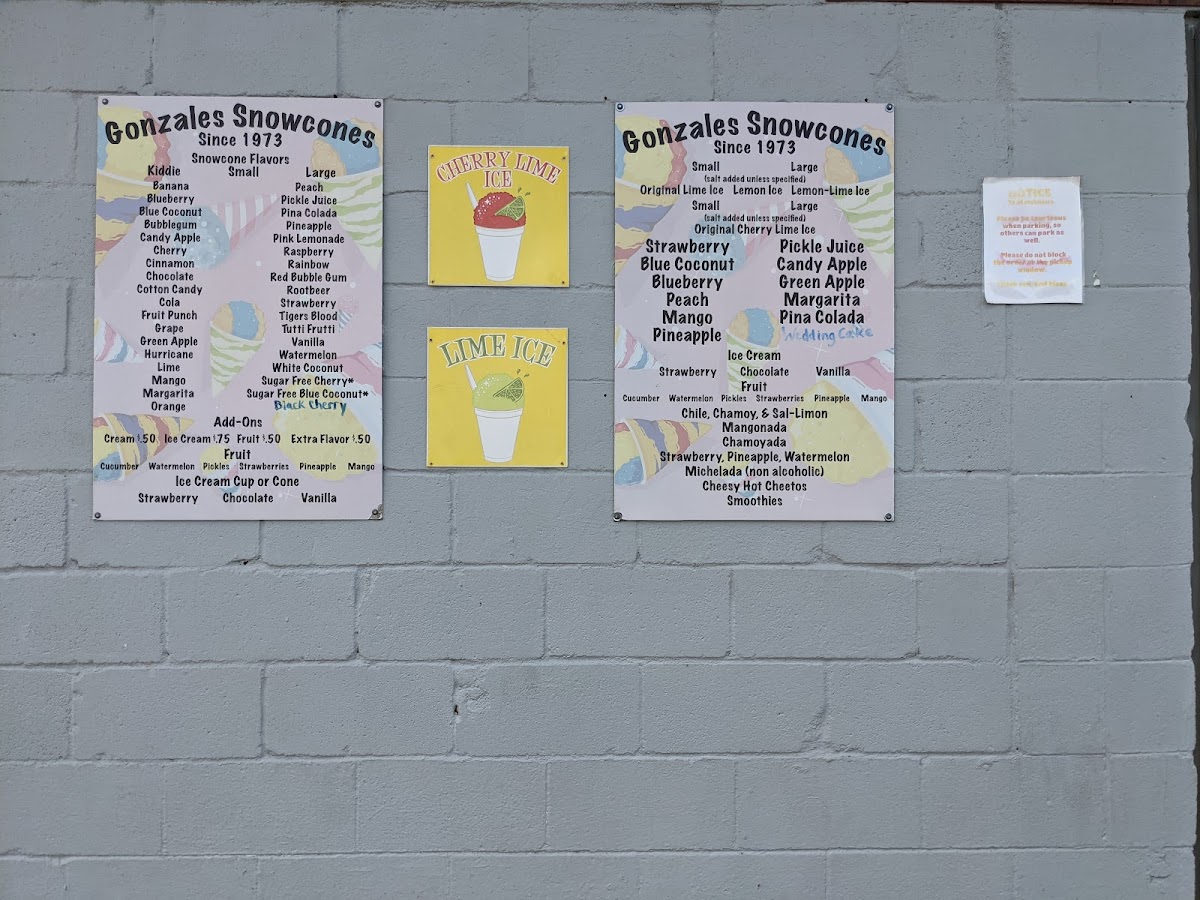 Gonzales Snowcones
Since 1973
Snowcone Flavors
Kiddie Small Large
Banana
Blueberry
Blue Coconut
Bubblegum
Candy Apple
Cherry
Cinnamon
Chocolate
Cotton Candy
Cola
Fruit Punch
Grape
Green Apple
Hurricane
Lime
Mango
Margarita
Orange
Peach
Pickle Juice
Pina Colada
Pineapple
Pink Lemonade
Raspberry
Rainbow
Red Bubble Gum
Rootbeer
Strawberry
Tigers Blood
Tutti Frutti
Vanilla
Watermelon
White Coconut
Sugar Free Cherry*
Sugar Free Blue Coconut*
Black Cherry
Add-Ons
Cream $.50 Ice Cream $.75 Fruit $.50 Extra Flavor $.50
Fruit
Cucumber Watermelon Pickles Strawberries Pineapple Mango
Ice Cream Cup or Cone
Strawberry Chocolate Vanilla
CHERRY LIME
ICE
LIME ICE
Gonzales Snowcones
Since 1973
Small Large
(salt added unless specified)
Original Lime Ice Lemon Ice Lemon-Lime Ice
Small Large
(salt added unless specified)
Original Cherry Lime Ice
Strawberry
Blue Coconut
Blueberry
Peach
Mango
Pineapple
Pickle Juice
Candy Apple
Green Apple
Margarita
Pina Colada
Wedding Cake
Ice Cream
Strawberry Chocolate Vanilla
Fruit
Cucumber Watermelon Pickles Strawberries Pineapple Mango
Chile, Chamoy, & Sal-Limon
Mangonada
Chamoyada
Strawberry, Pineapple, Watermelon
Michelada (non alcoholic)
Cheesy Hot Cheetos
Smoothies
NOTICE
Please be courteous
when parking, so
others can park as
well.
Please do not block
the order or the pickup
window.